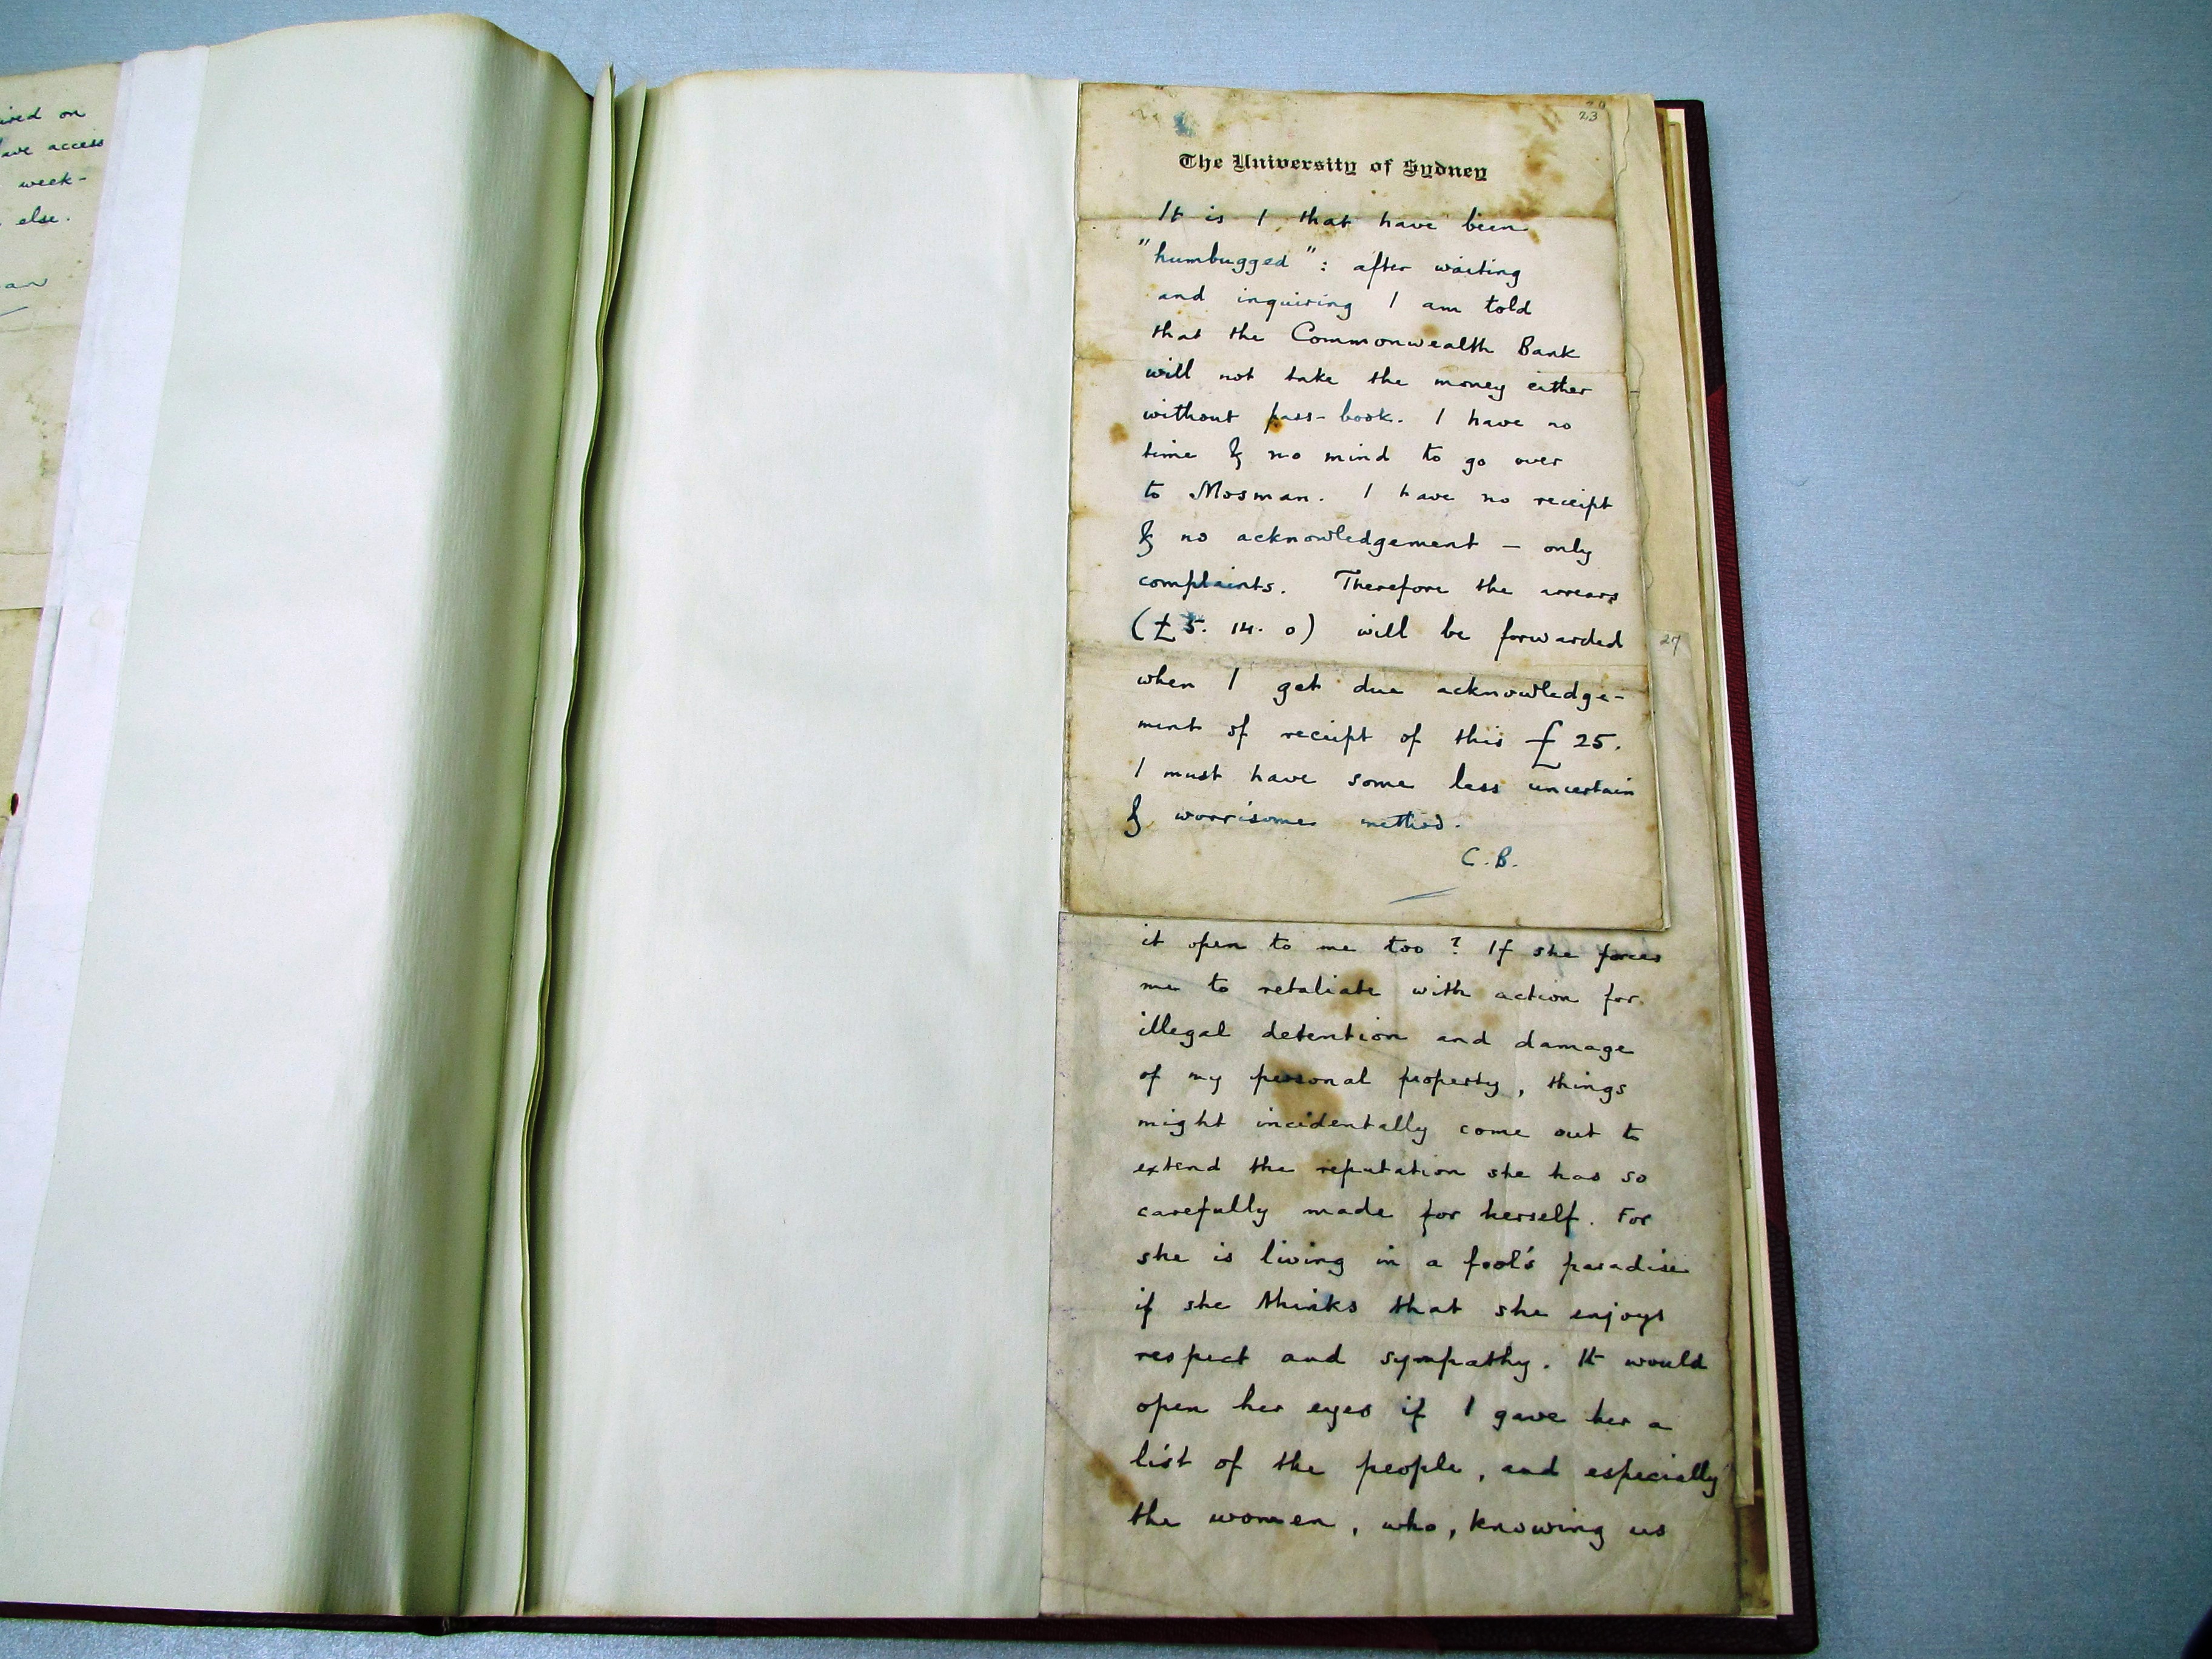 ired on
ave access
week-
else.
20
23
The University of Sydney
It is I that have been
"humbugged": after waiting
and inquiring I am told
that the Commonwealth Bank
will not take the money either
without pass-book. I have no
time & no mind to go over
to Mosman. I have no receipt
& no acknowledgement – only
complaints. Therefore the arrears
(£5. 14. 0) will be forwarded
when I get due acknowledge-
ment of receipt of this £25.
I must have some less uncertain
& worrisome method.
C. B.
27
it open to me too? If she forces
me to retaliate with action for
illegal detention and damage
of my personal property, things
might incidentally come out to
extend the reputation she has so
carefully made for herself. For
she is living in a fool's paradise
if she thinks that she enjoys
respect and sympathy. It would
open her eyes if I gave her a
list of the people, and especially
the women, who, knowing us